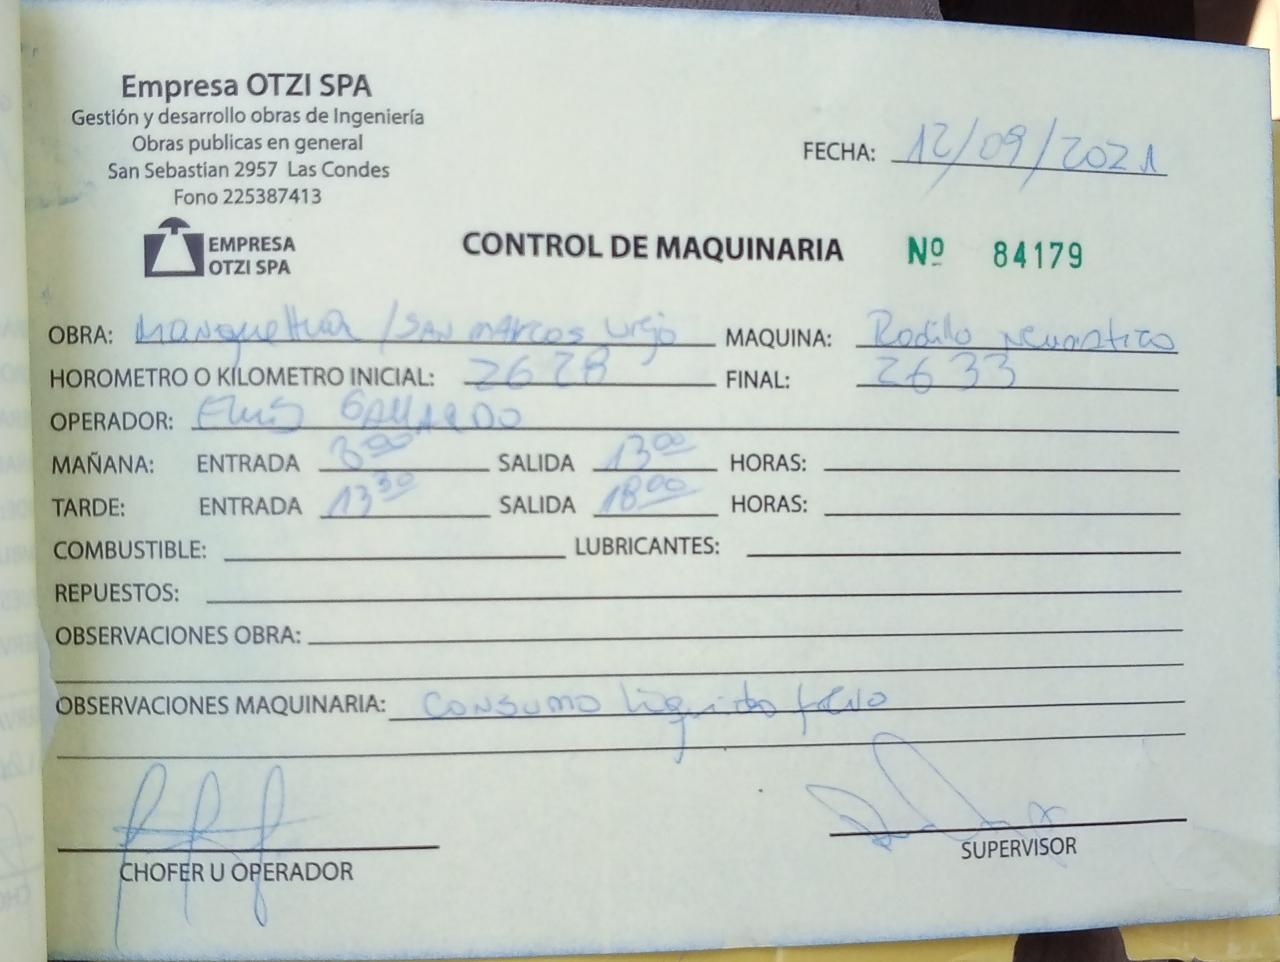 Empresa OTZI SPA
Gestión y desarrollo obras de Ingeniería
Obras publicas en general
San Sebastian 2957 Las Condes
Fono 225387413
FECHA: 12/09/2021
EMPRESA
OTZI SPA
CONTROL DE MAQUINARIA Nº 84179
OBRA: / SAN MARCOS MAQUINA: Rodillo neumatico
HOROMETRO O KILOMETRO INICIAL: 2628 FINAL: 2633
OPERADOR: GALLARDO
MAÑANA: ENTRADA 8:00 SALIDA 13:00 HORAS:
TARDE: ENTRADA 13:30 SALIDA 18:00 HORAS:
COMBUSTIBLE: LUBRICANTES:
REPUESTOS:
OBSERVACIONES OBRA:
OBSERVACIONES MAQUINARIA: Consumo liquido freno
CHOFER U OPERADOR SUPERVISOR